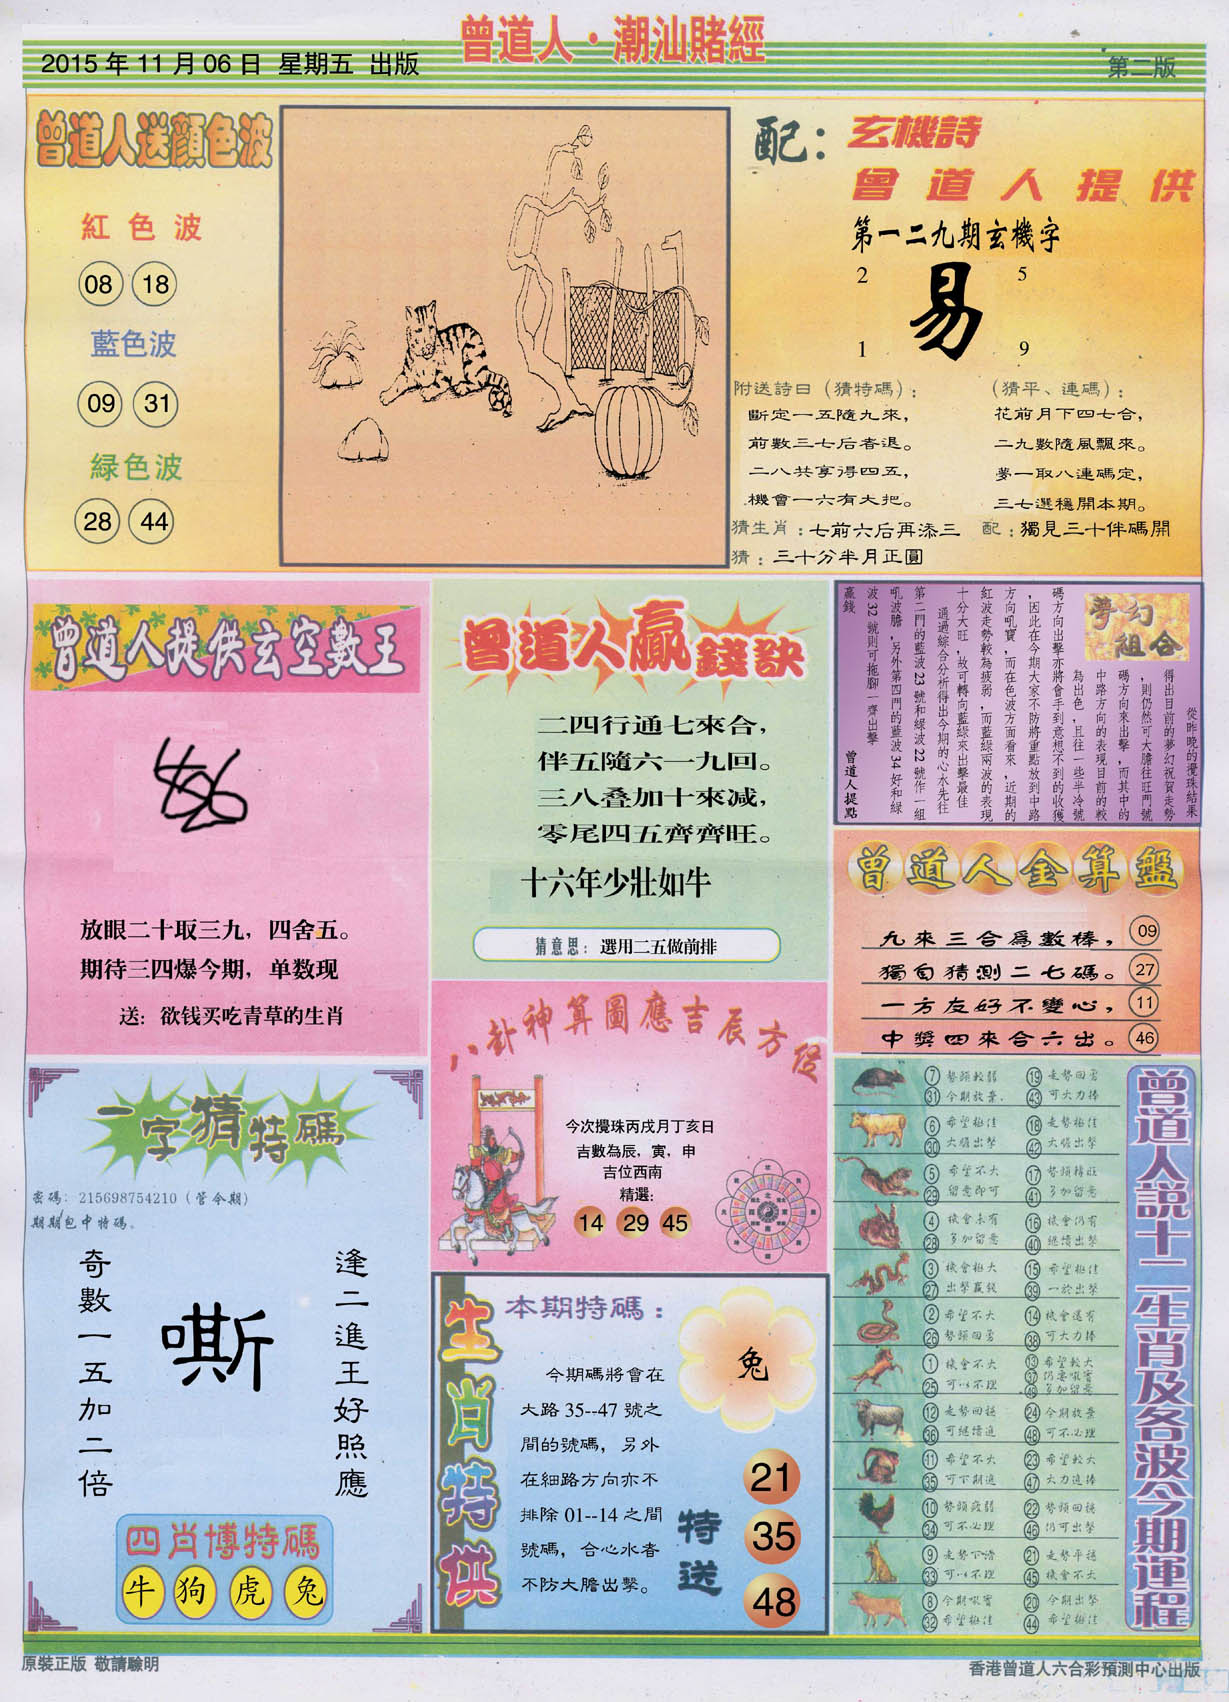 曾道人·潮汕賭經
2015年11月06日 星期五 出版
第二版
曾道人送顏色波
紅色波
08 18
藍色波
09 31
緑色波
28 44
配：玄機詩
曾道人提供
第一二九期玄機字
2 5
易
1 9
附送詩曰（猜特碼）：
斷定一五隨九來，
前數三七后者退。
二八共享得四五，
機會一六有大把。
（猜平、連碼）：
花前月下四七合，
二九數隨風飄來。
夢一取八連碼定，
三七選穩開本期。
猜生肖：七前六后再添三
配：獨見三十伴碼開
猜：三十分半月正圓
曾道人提供玄空數王
放眼二十取三九，四舍五。
期待三四爆今期，单数现
送：欲钱买吃青草的生肖
曾道人贏錢訣
二四行通七來合，
伴五隨六一九回。
三八叠加十來减，
零尾四五齊齊旺。
十六年少壯如牛
猜意思：選用二五做前排
夢幻組合
從昨晚的攪珠結果
得出目前的夢幻祝賀走勢
，則仍然可大膽往旺門號
碼方向來出擊，而其中的
中路方向的表現目前的較
為出色，且往一些半冷號
碼方向出擊亦將會手到意想不到的收獲
，因此在今期大家不防將重點放到中路
方向吼寶，而在色波方面看來，近期的
紅波走勢較為疲弱，而藍綠兩波的表現
十分大旺，故可轉向藍綠來出擊最佳
通過綜合分析得出今期的心水先往
第二門的藍波23號和緑波22號作一組
吼波膽，另外第四門的藍波34好和緑
波32號則可拖腳一齊出擊
贏錢
曾道人提點
曾道人金算盤
九來三合爲數棒， 09
獨自猜測二七碼。 27
一方友好不變心， 11
中獎四來合六出。 46
八卦神算圖應吉辰方位
今次攪珠丙戌月丁亥日
吉數為辰，寅，申
吉位西南
精選：
14 29 45
一字猜特碼
密碼：215698754210（管今期）
期期包中特碼。
逢二進王好照應
嘶
奇數一五加二倍
四肖博特碼
牛 狗 虎 兔
生肖特供
本期特碼：
兔
今期碼將會在
大路35--47號之
間的號碼，另外
在細路方向亦不
排除01--14之間
號碼，合心水者
不防大膽出擊。
特送
21
35
48
曾道人説十二生肖及各波今期運程
7 勢頭較弱 19 走勢回勇
31 今期放棄 43 可大力捧
6 希望極佳 18 走勢極佳
30 大膽出擊 42 大膽出擊
5 希望不大 17 勢頭轉旺
29 留意即可 41 多加留意
4 機會未有 16 機會仍有
28 多加留意 40 繼續出擊
3 機會極大 15 希望極佳
27 出擊贏錢 39 一於出擊
2 希望不大 14 機會還有
26 勢頭回勇 38 可大力捧
1 機會不大 13 希望較大
25 可以不理 37 仍要吼實
49 多加留意
12 走勢回穩 24 今期放棄
36 可繼續追 48 可不必理
11 希望不大 23 希望較大
35 可下期追 47 大力追捧
10 勢頭疲弱 22 勢頭回穩
34 可不必理 46 仍可出擊
9 走勢下滑 21 走勢平穩
33 可以不理 45 機會不大
8 今期吼實 20 今期出擊
32 希望極佳 44 希望極佳
原裝正版 敬請驗明
香港曾道人六合彩預測中心出版